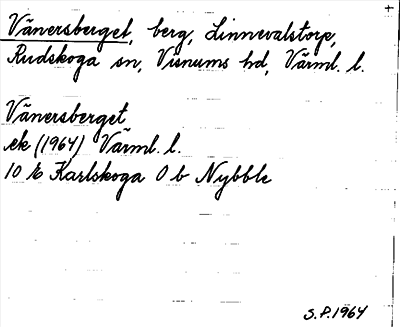 Vänersberget, berg, Linnevalstorp,
Rudskoga sn, Visnums hd, Värml. l.
Vänersberget
ek (1964) Värml. l.
10 E Karlskoga 0 b Nybble
S.P. 1964